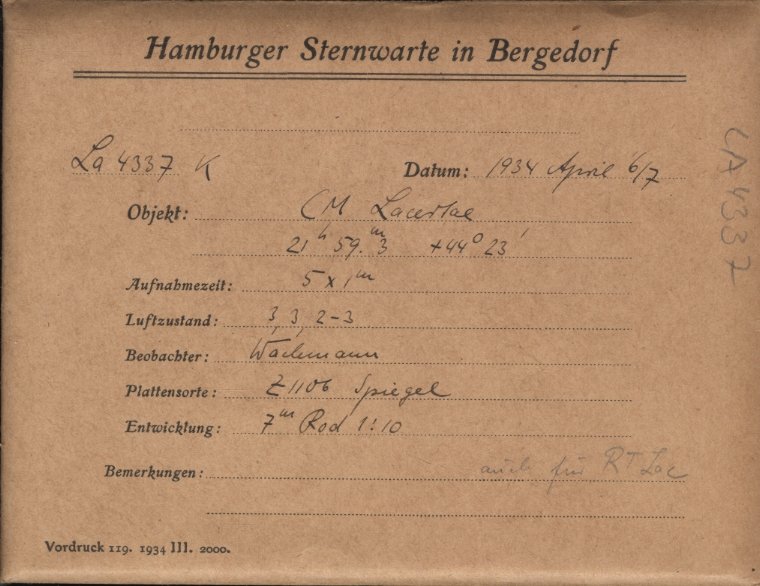 Hamburger Sternwarte in Bergedorf
La 4337 K Datum: 1934 April 6/7
Objekt: CM Lacertae
21ʰ 59.ᵐ3 +44⁰ 23'
Aufnahmezeit: 5 x 1ᵐ
Luftzustand: 3, 3, 2-3
Beobachter: Wachmann
Plattensorte: Z1106 Spiegel
Entwicklung: 7ᵐ Rod 1:10
Bemerkungen: auch für RT Lac
Vordruck 119. 1934 III. 2000.
LA 4337